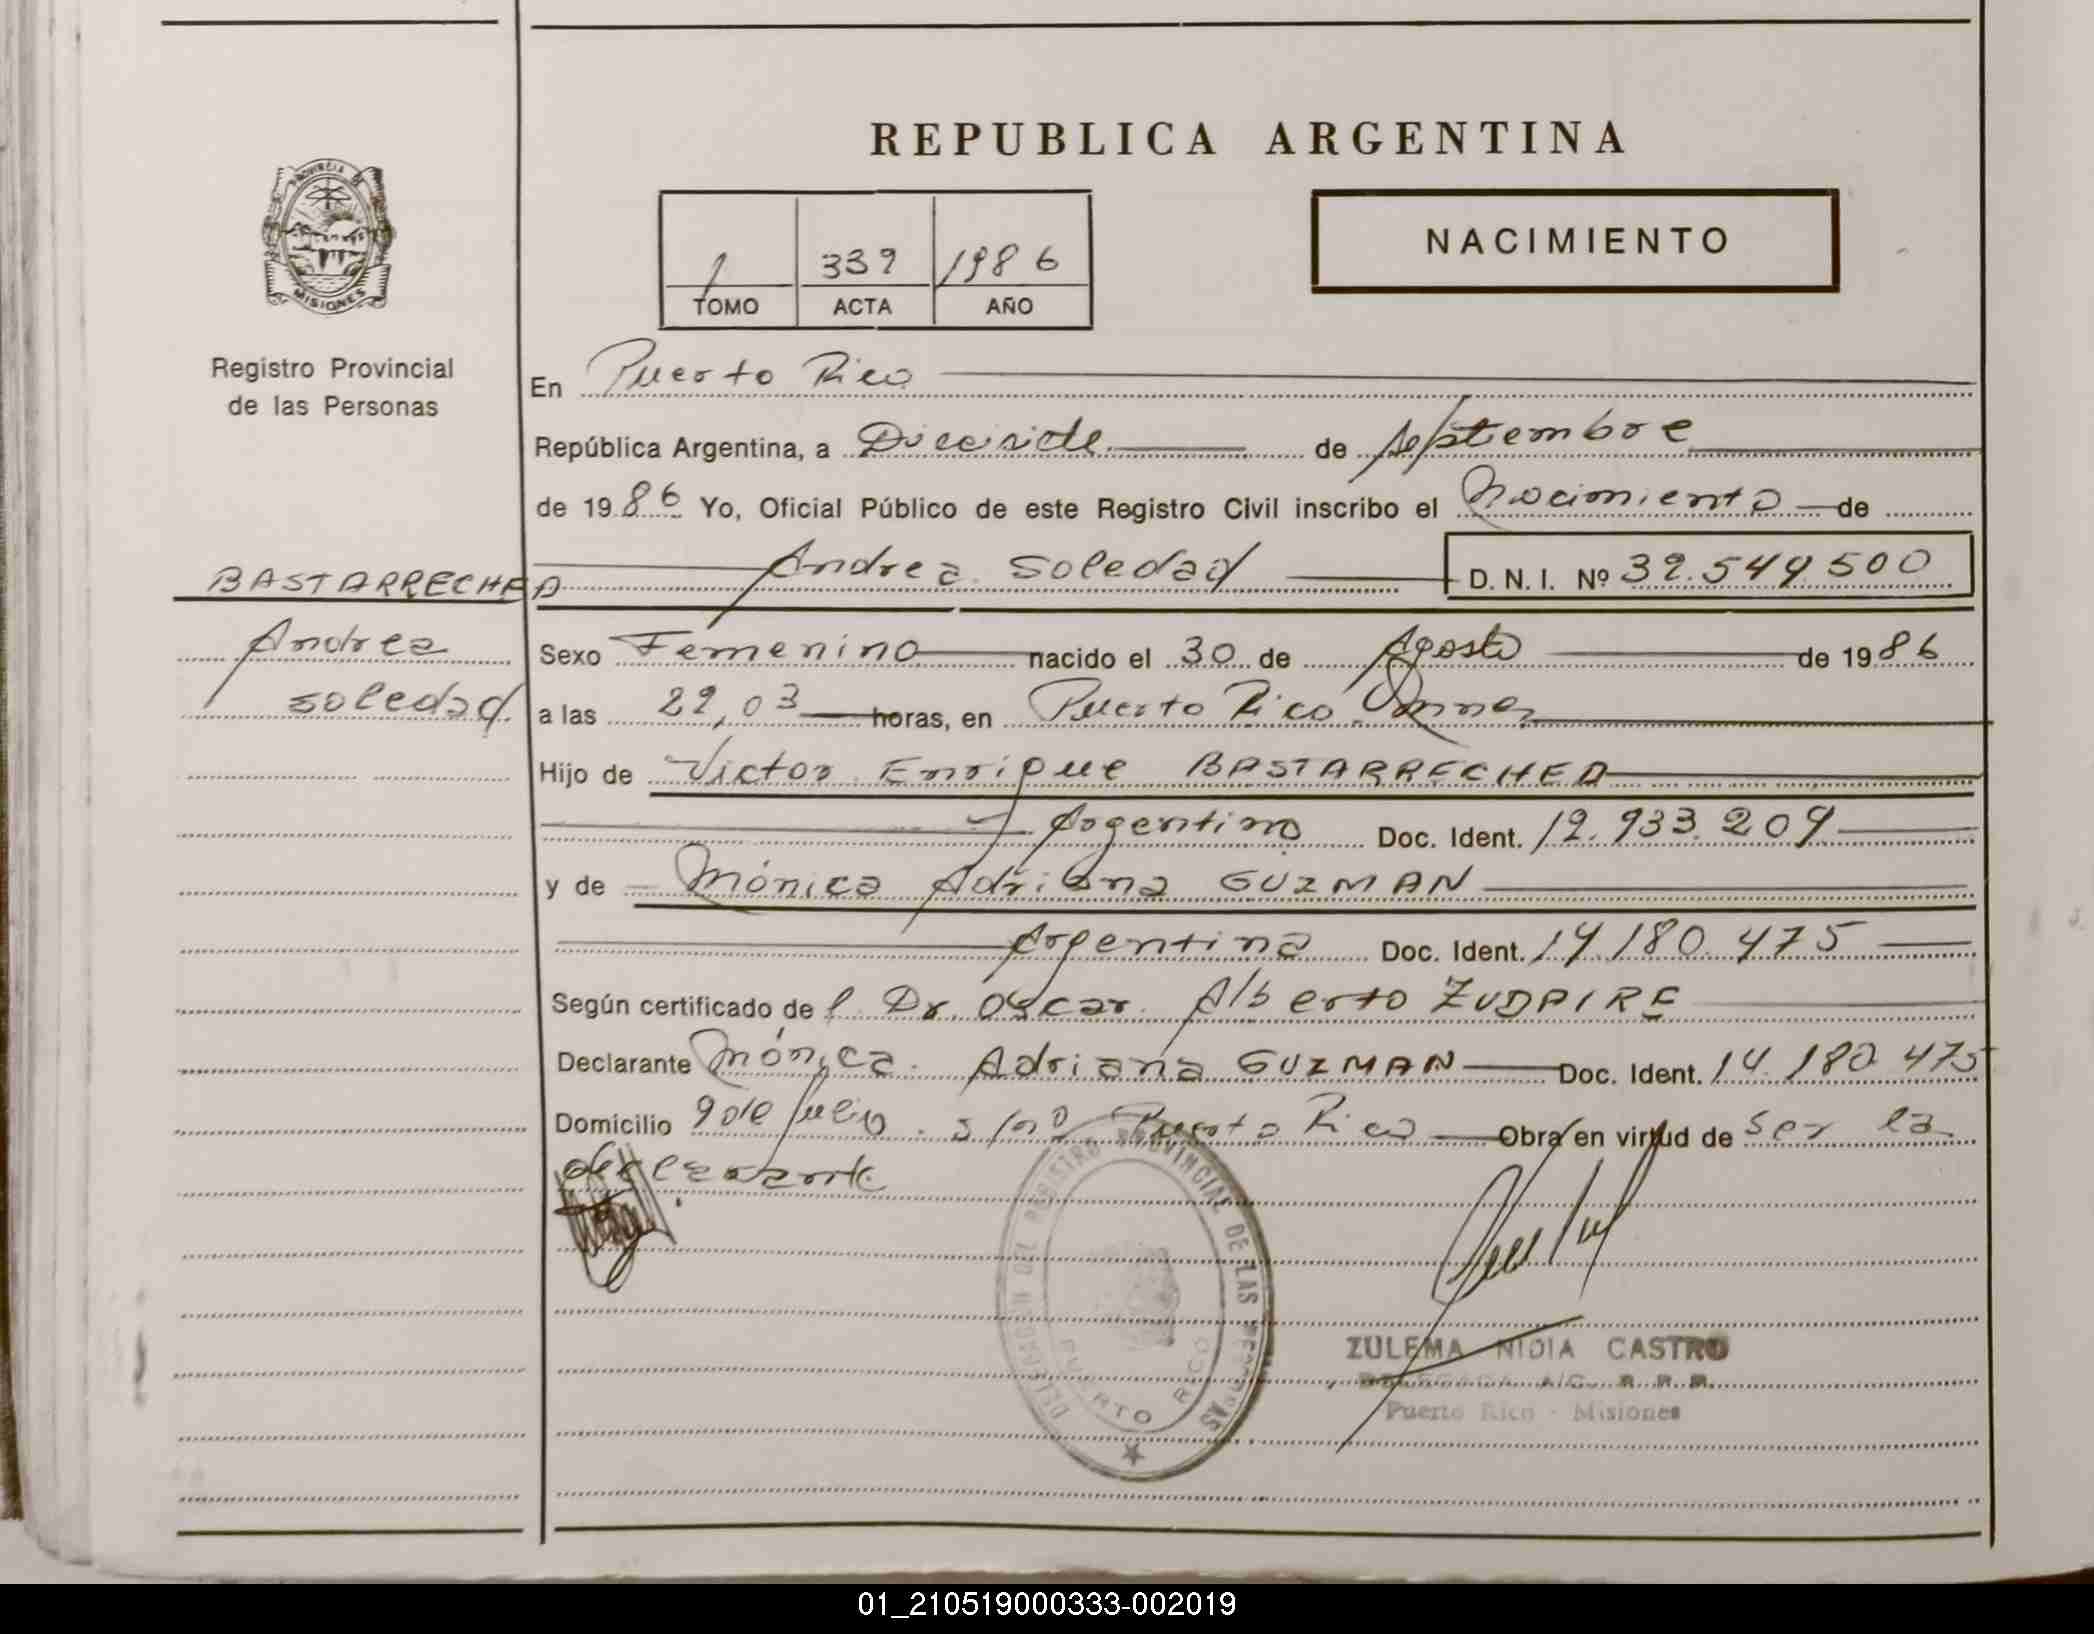 REPUBLICA ARGENTINA
PROVINCIA DE
MISIONES
Registro Provincial
de las Personas
NACIMIENTO
1 339 1986
TOMO ACTA AÑO
En Puerto Rico
República Argentina, a Diecisiete de septiembre
de 1986 Yo, Oficial Público de este Registro Civil inscribo el Nacimiento de
Andrea Soledad D. N. I. Nº 32.549.500
BASTARRECHEA
Andrea
Soledad
Sexo Femenino nacido el 30 de Agosto de 1986
a las 22,03 horas, en Puerto Rico
Hijo de Victor Enrique BASTARRECHEA
Argentino Doc. Ident. 12.933.209
y de Mónica Adriana GUZMAN
Argentina Doc. Ident. 14.180.475
Según certificado de l Dr. Oscar Alberto ZUDAIRE
Declarante Mónica Adriana GUZMAN Doc. Ident. 14.180.475
Domicilio 9 de Julio s/nº Puerto Rico Obra en virtud de ser la
declarante
DELEGACION DEL REGISTRO PROVINCIAL DE LAS PERSONAS
PUERTO RICO
ZULEMA NIDIA CASTRO
DELEGADA A/C. R. P. P.
Puerto Rico - Misiones
01_210519000333-002019